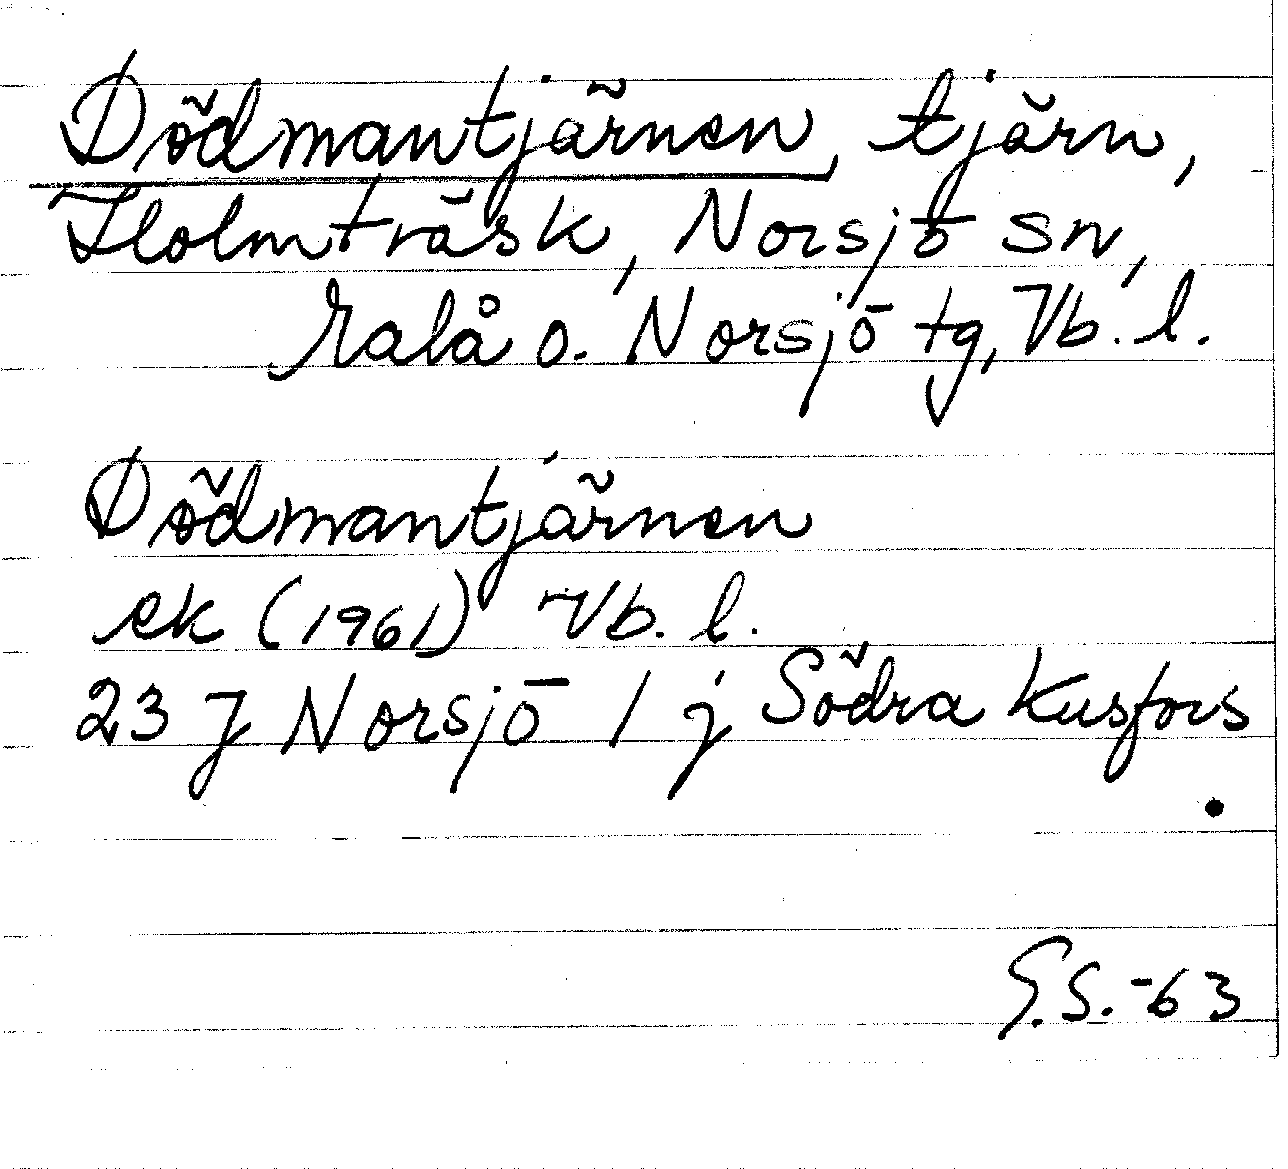 Dödmantjärnen, tjärn,
Holmträsk, Norsjö sn,
Malå o. Norsjö tg, Vb. l.
Dödmantjärnen
ek (1961) Vb. l.
23 J Norsjö / j Södra Kusfors
G.S. -63